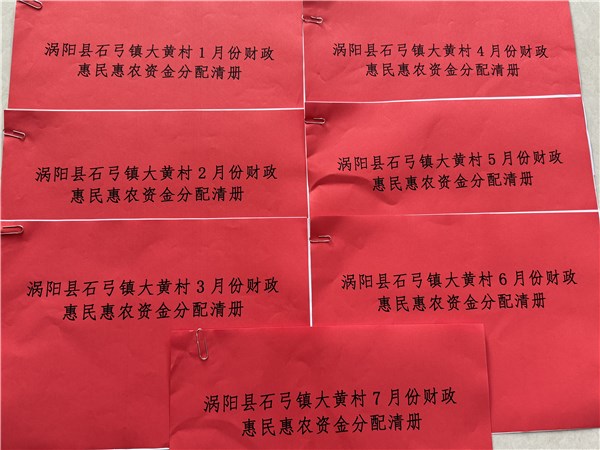 涡阳县石弓镇大黄村1月份财政
惠民惠农资金分配清册
涡阳县石弓镇大黄村2月份财政
惠民惠农资金分配清册
涡阳县石弓镇大黄村3月份财政
惠民惠农资金分配清册
涡阳县石弓镇大黄村4月份财政
惠民惠农资金分配清册
涡阳县石弓镇大黄村5月份财政
惠民惠农资金分配清册
涡阳县石弓镇大黄村6月份财政
惠民惠农资金分配清册
涡阳县石弓镇大黄村7月份财政
惠民惠农资金分配清册